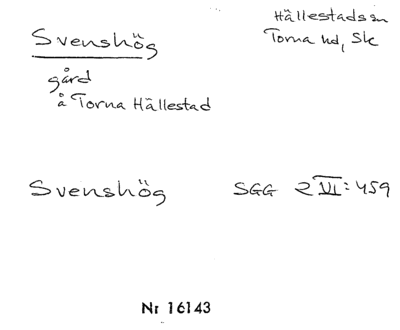 Svenshög
Hällestads sn
Torna hd, Sk
gård
å Torna Hällestad
Svenshög SGG 2 VI: 459
Nr 16143